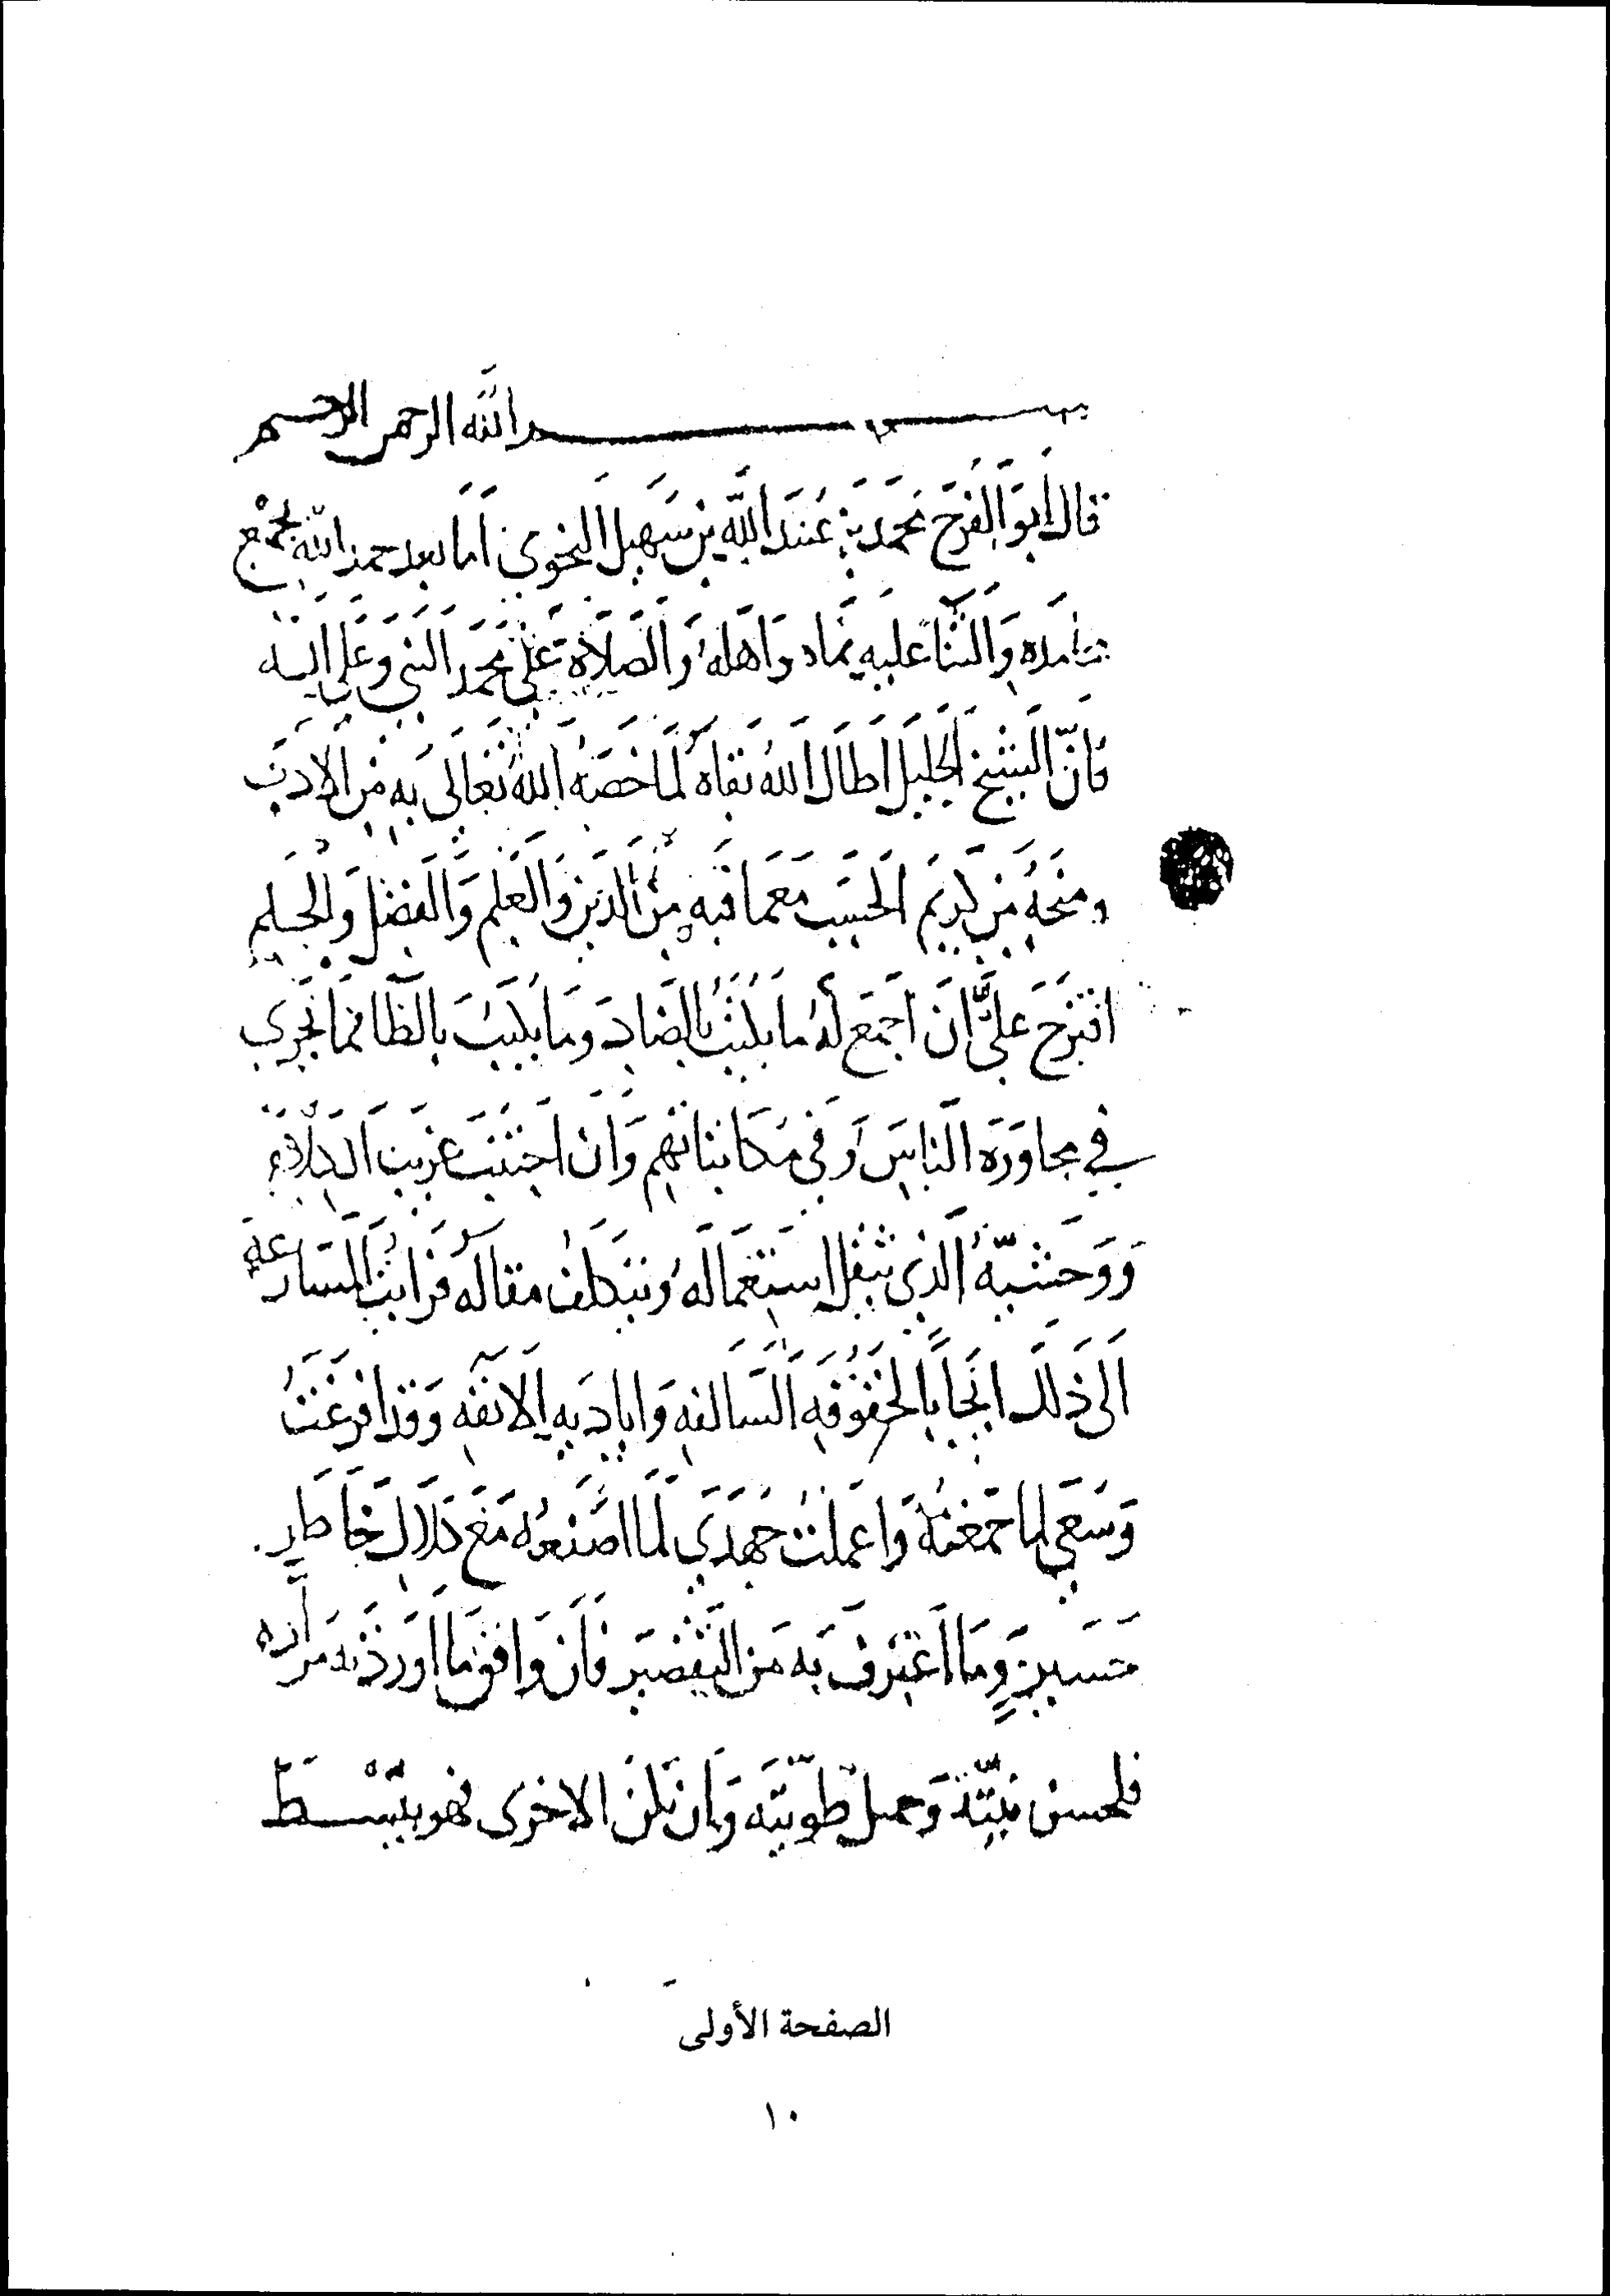 بسم الله الرحمن الرحيم
قال أبو الفرج محمد بن عبد الله بن سهيل النحوي أما بعد حمد الله بجميع
محامده والثنا عليه بما هو أهله والصلاة على محمد النبي وعلى اله
فإن الشيخ الجليل أطال الله بقاه لما خصه الله تعالى به من الأدب
ومنحه من كريم الحسب مع ما فيه من الدين والعلم والفضل والحلم
اقترح علي أن أجمع له ما يكتب بالضاد وما يكتب بالظا مما يجري
في محاورة الناس وفي مكاتباتهم وأن أجتنب غريب الكلام
ووحشيه الذي يثقل استعماله ويتكلف مقاله فرأيت المسارعة
إلى ذلك إيجابا لحقوقه السالفه وأياديه الآنفه وقد أفرغت
وسعي لما جمعته وأعملت جهدي لما أصنعه مع كلال خاطر
حسير وما أعترف به من التقصير فإن وافق ما أوردته مراده
فلحسن نيته وجميل طويته وإن تكن الاخرى فهو يبسط
الصفحة الأولى
١٠